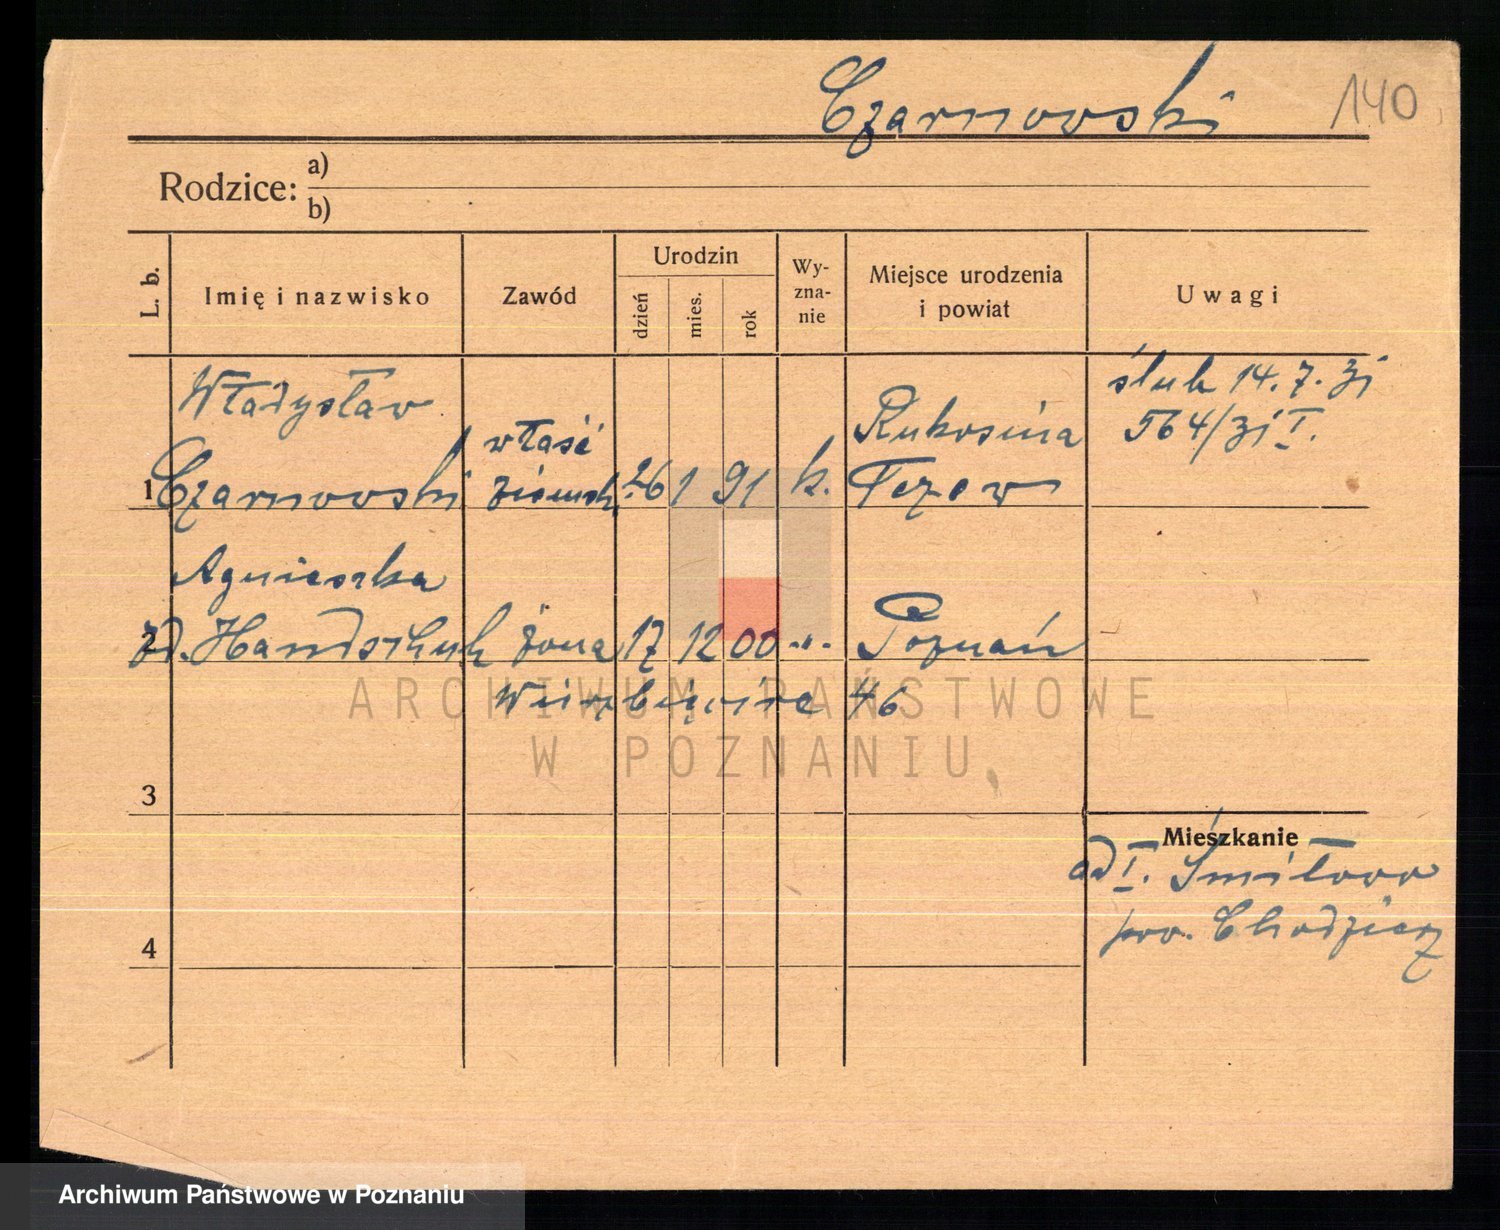 Czarnowski 140
Rodzice: a)
b)
L. b.
Imię i nazwisko
Zawód
Urodzin
dzień
mies.
rok
Wy-
zna-
nie
Miejsce urodzenia
i powiat
Uwagi
Władysław
1 Czarnowski
właść
ziemsk.
26 1 91 k.
Rukosina
Tczew
ślub 14. 7. 31
564/31 I.
Agnieszka
2 zd. Handschuh żona 17 12 00 -"- Poznań
Wierzbięcice 46
3
4
Mieszkanie
ad I. Śmiłowo
pow. Chodzież
ARCHIWUM PAŃSTWOWE
W POZNANIU
Archiwum Państwowe w Poznaniu